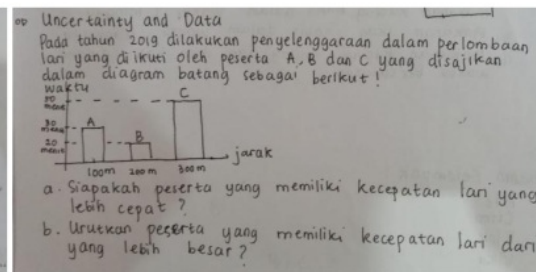 Uncertainty and Data
Pada tahun 2019 dilakukan penyelenggaraan dalam perlombaan
lari yang diikuti oleh peserta A, B dan C yang disajikan
dalam diagram batang sebagai berikut!
waktu
C
30
A
20
B
jarak
100m 200m 300m
a. Siapakah peserta yang memiliki kecepatan lari yang
lebih cepat?
b. Urutkan peserta yang memiliki kecepatan lari dari
yang lebih besar?